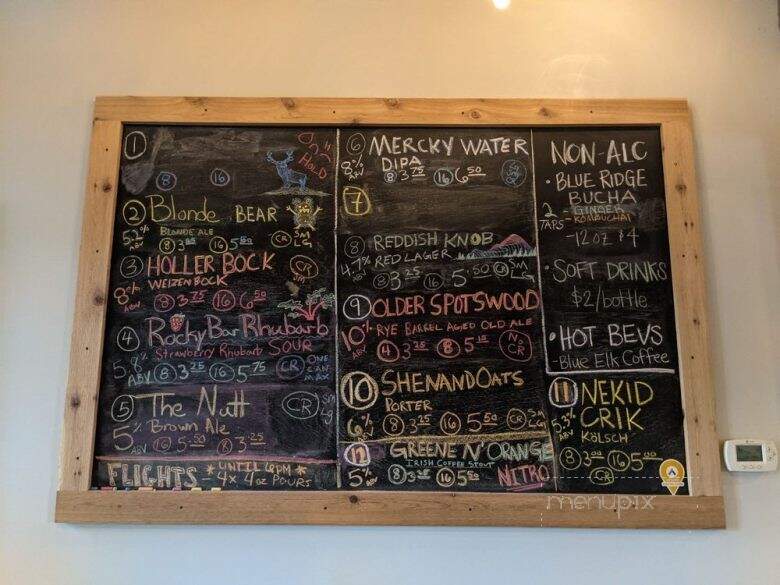 1
HOLD
8 16
2 Blonde BEAR
BLONDE ALE
5.2% ABV 8 3.00 16 5.50 CR SM LG
3 HOLLER BOCK CR
WEIZENBOCK SM
8% ABV 8 3.75 16 6.50
4 Rocky Bar Rhubarb
Strawberry Rhubarb SOUR
5.8% ABV 8 3.75 16 5.75 CR ONE CAN MAX
5 The Nutt CR SM LG
Brown Ale
5% ABV 16 5.50 8 3.25
FLIGHTS - * UNTIL 6PM *
4x 4oz POURS
6 MERCKY WATER
DIPA
8% ABV 8 3.75 16 6.50
7
8 REDDISH KNOB
4.7% RED LAGER
ABV 8 3.25 16 5.50 CR SM LG
9 OLDER SPOTSWOOD
10% RYE BARREL AGED OLD ALE
ABV 4 3.25 8 5.25 NO CR
10 SHENANDOATS
PORTER
6% ABV 8 3.25 16 5.50 CR SM LG
12 GREENE N' ORANGE
IRISH COFFEE STOUT
5% ABV 8 3.25 16 5.50 NITRO
NON-ALC
• BLUE RIDGE
BUCHA
2 TAPS - GINGER
- KOMBUCHAI
- 12 oz $4
• SOFT DRINKS
$2/bottle
• HOT BEVS
- Blue Elk Coffee
11 NEKID
CRIK
KÖLSCH
5.3% ABV 8 3.00 16 5.00
CR
menupix